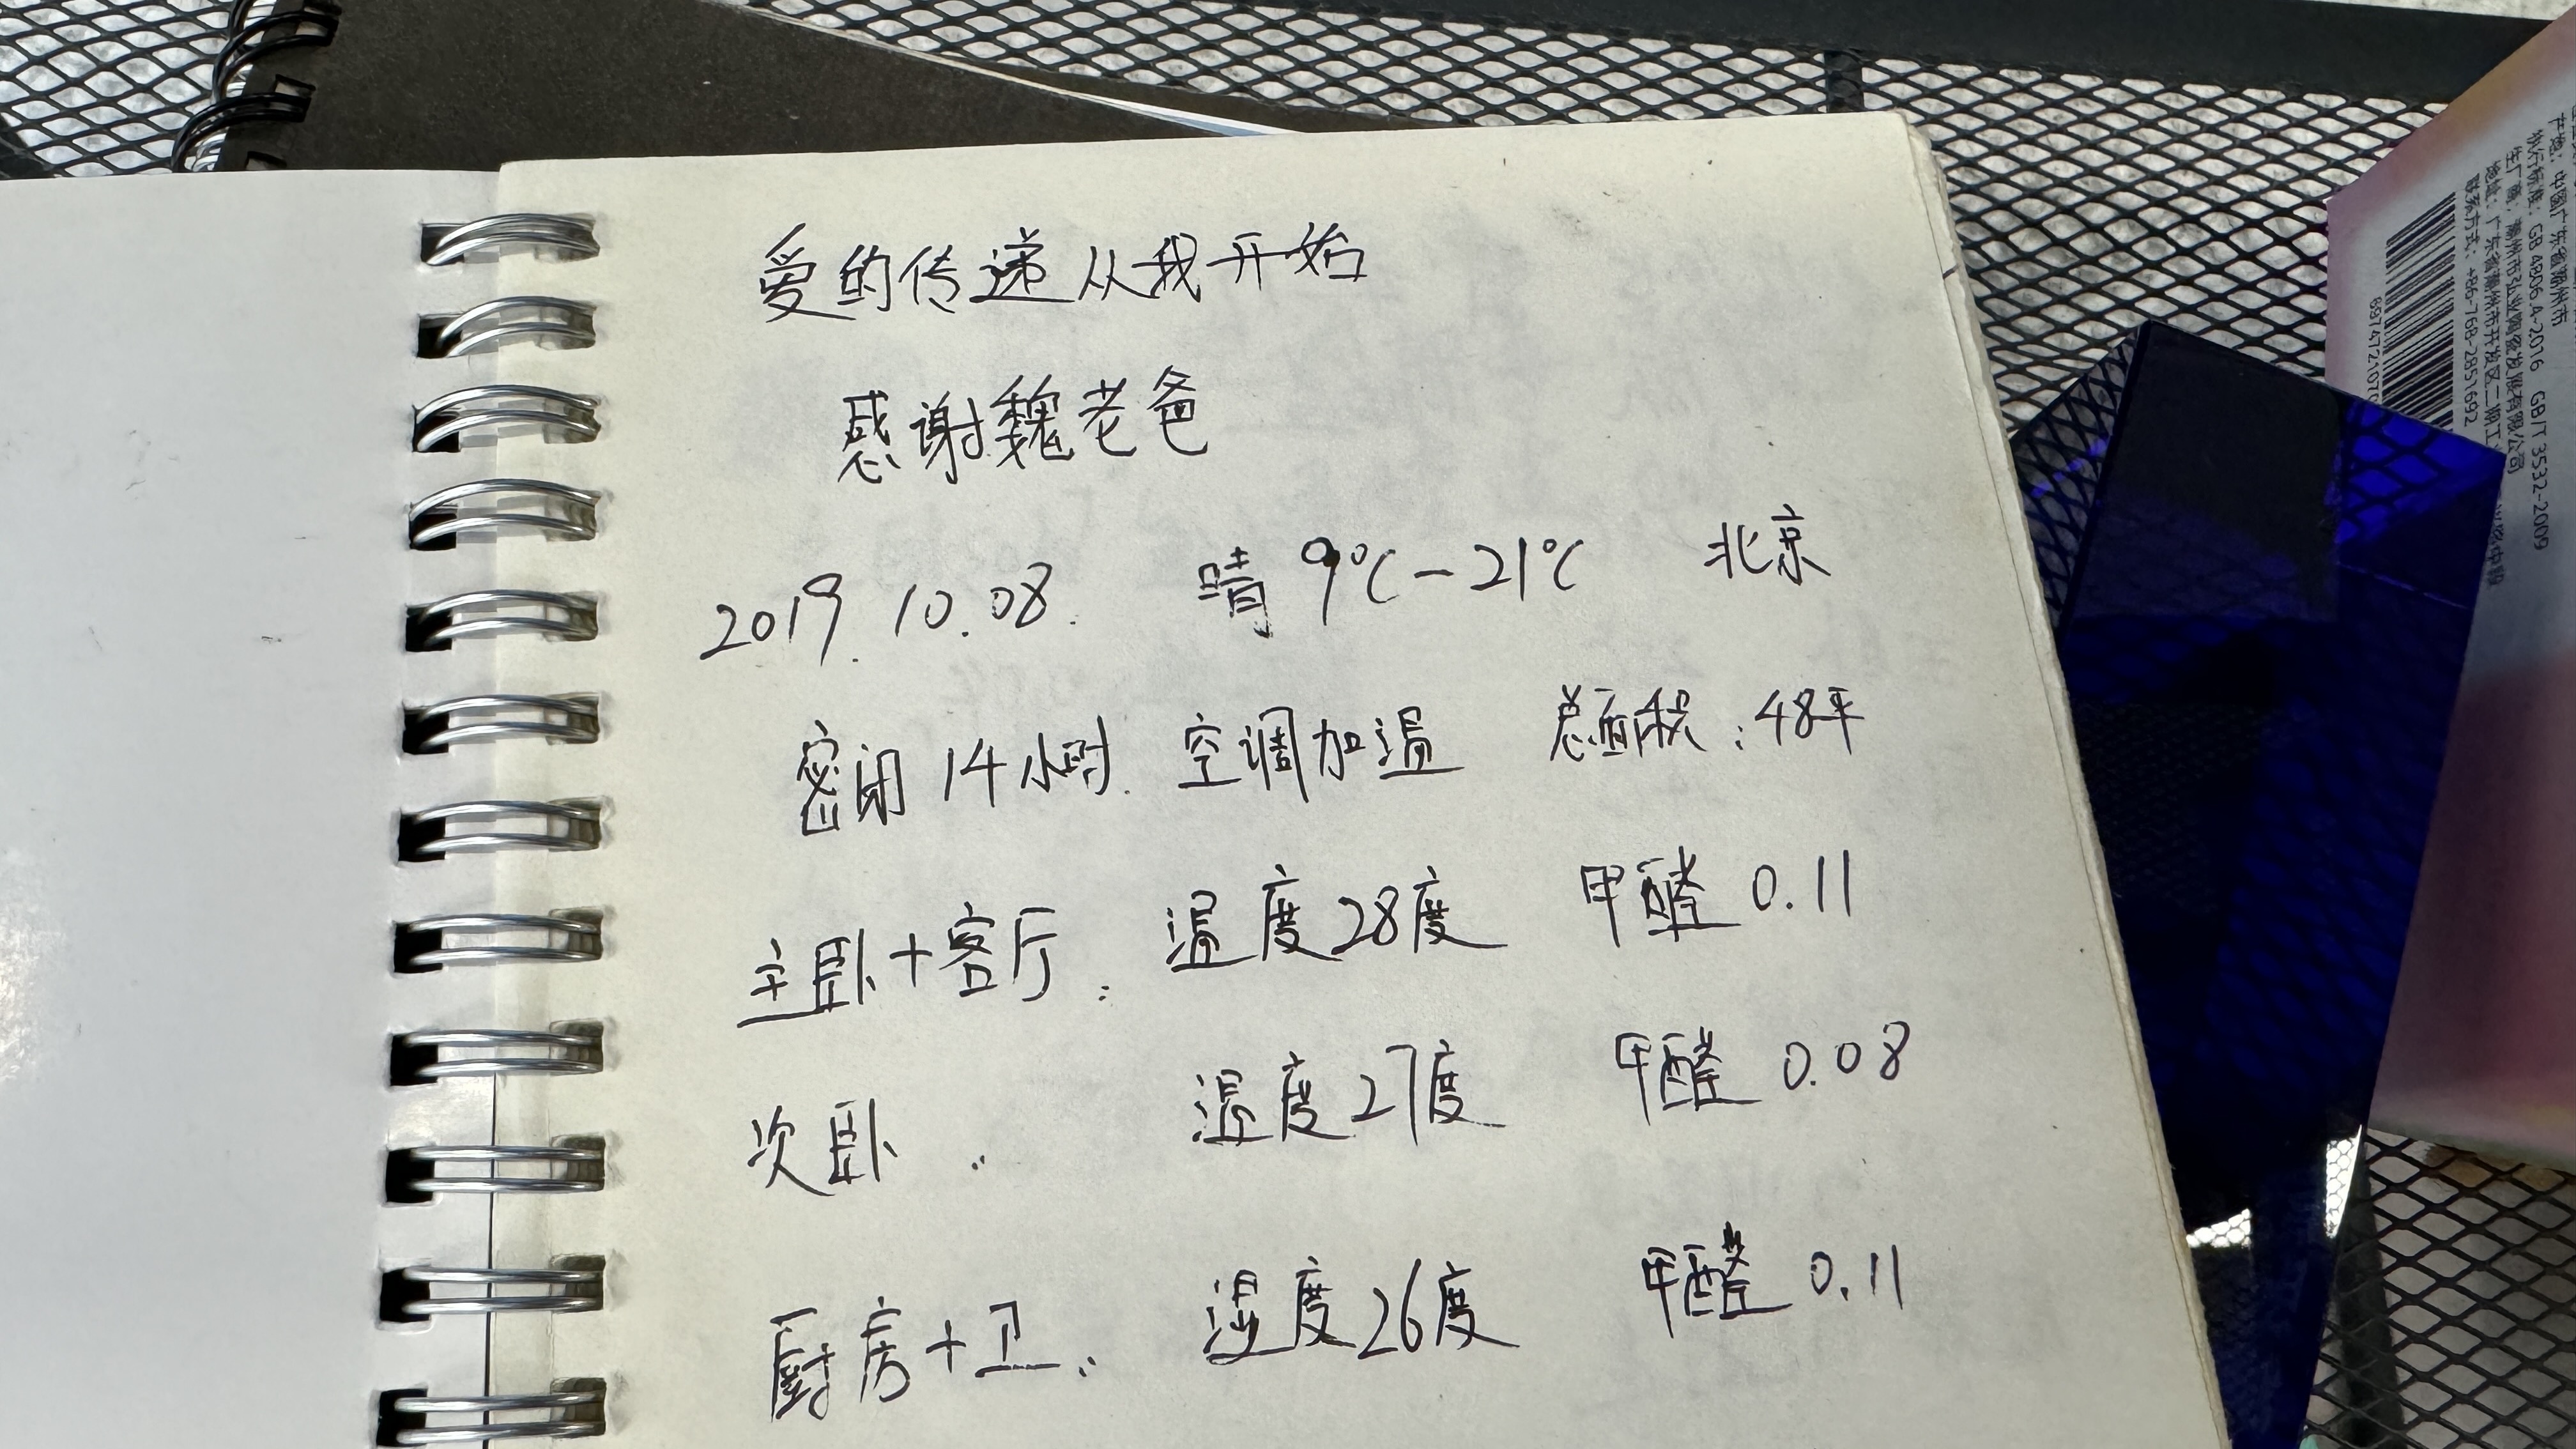 爱的传递从我开始
感谢魏老爸
2019.10.08. 晴 9℃-21℃ 北京
密闭14小时. 空调加温 总面积:48平
主卧+客厅: 温度28度 甲醛 0.11
次卧: 温度27度 甲醛 0.08
厨房+卫: 温度26度 甲醛 0.11
产地:中国广东省潮州市
执行标准:GB 4806.4-2016 GB/T 3532-2009
联系方式:+86-768-2851692